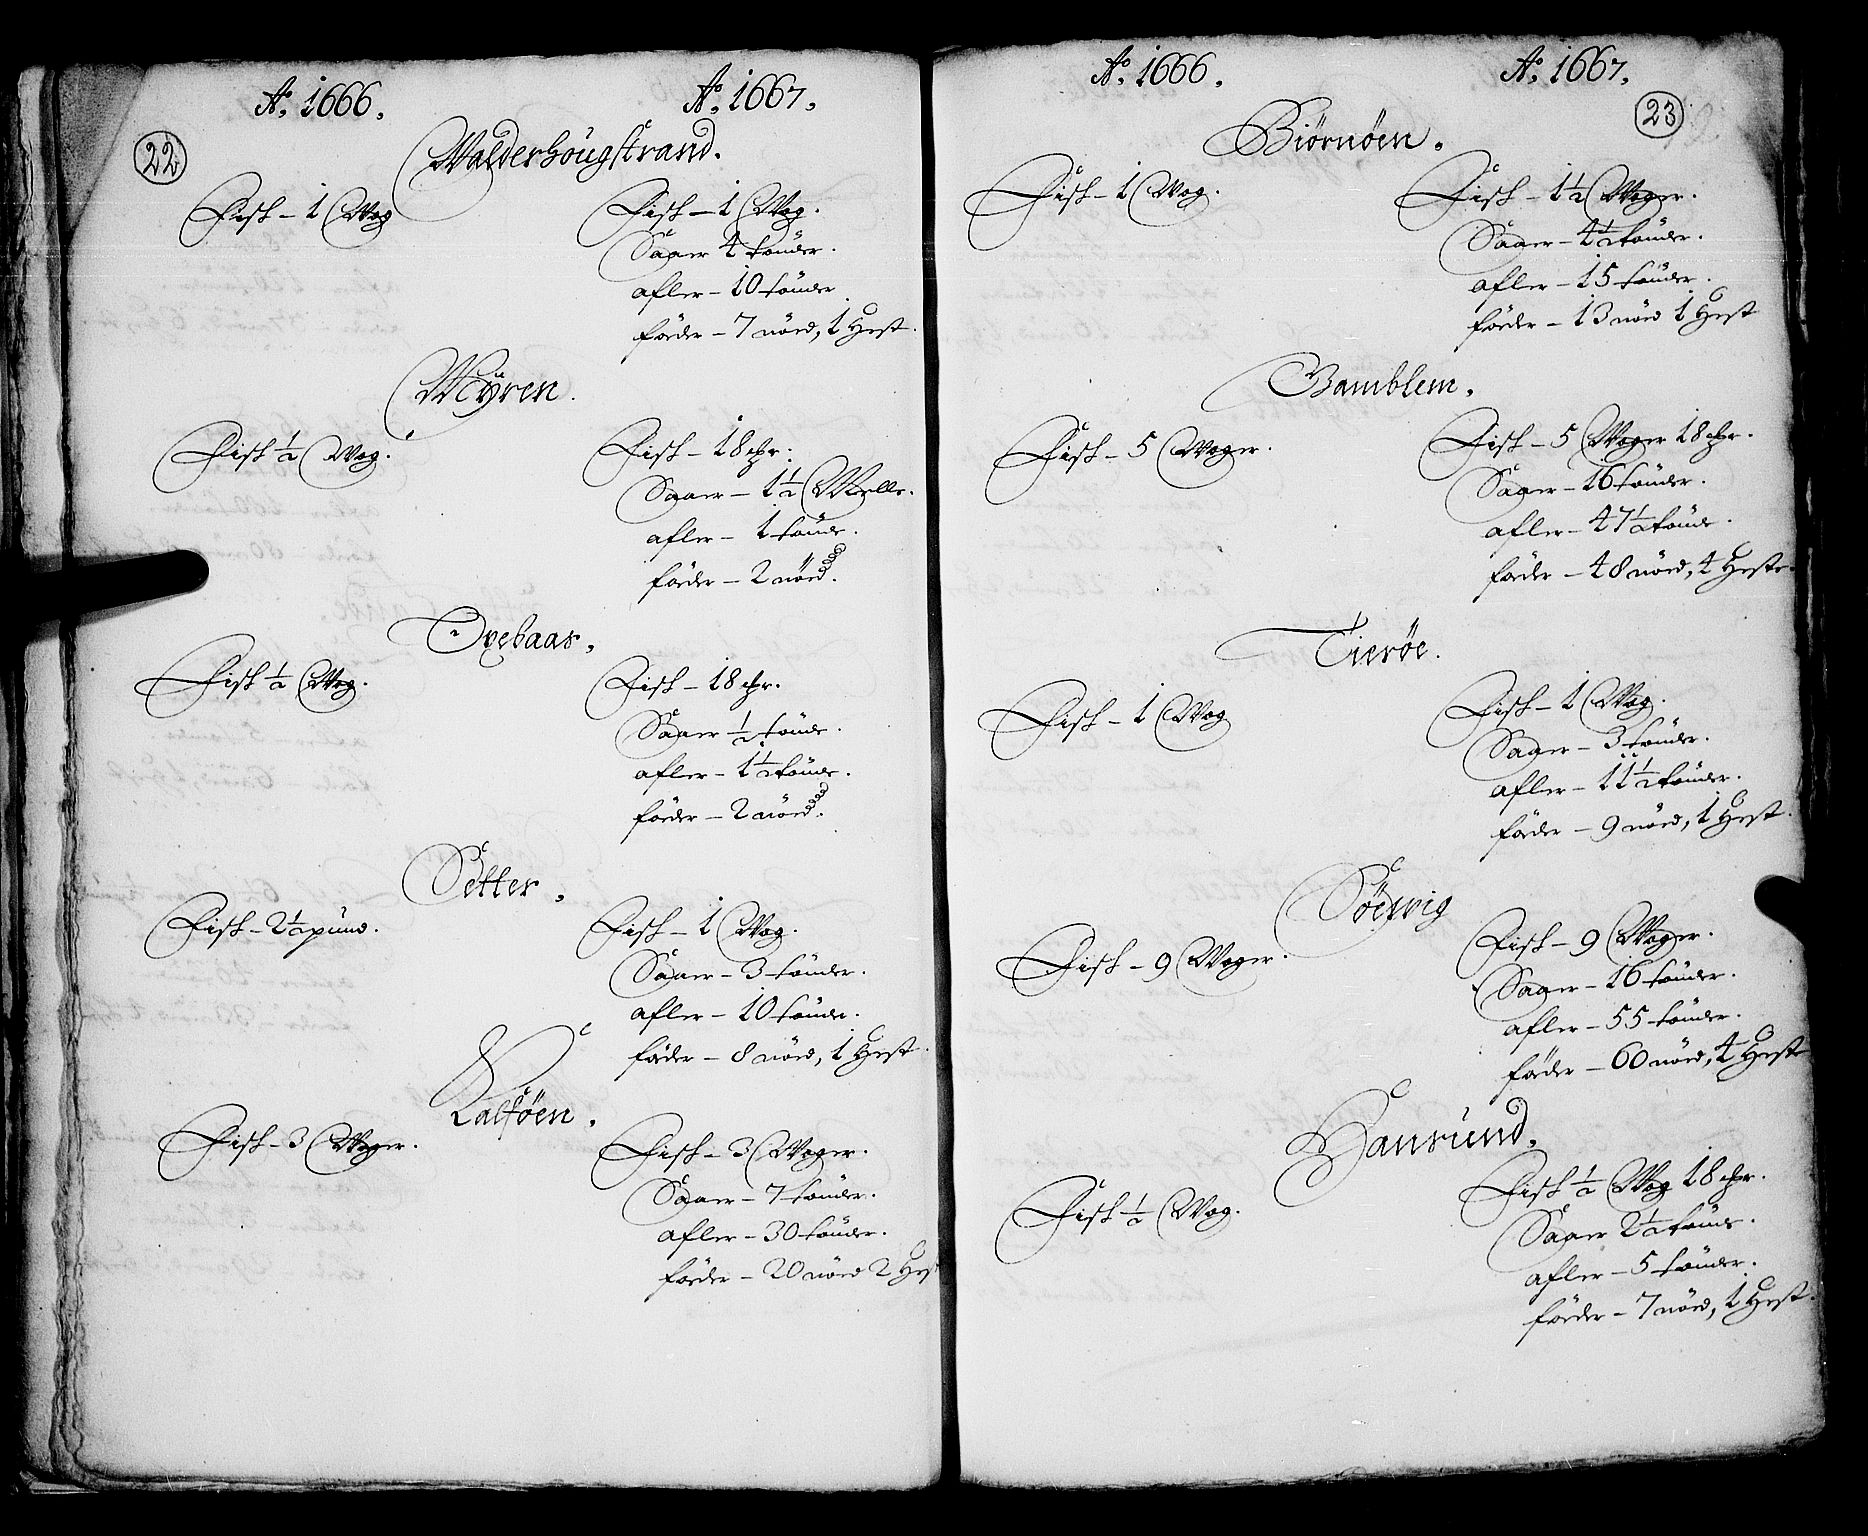 Aº. 1666. Aº. 1667.
22
Walderhougstrand.
Fisk - 1 Wog
Fisk - 1 Wog.
Saaer 4 tönder.
afler - 10 tönder
föeder - 7 nöed, 1 Hest.
Myren.
Fisk ½ Wog.
Fisk - 18 mr.
Saaer - 1½ Melle.
afler - 1 tönde.
föder - 2 nöed.
Oxebaas.
Fisk ½ Wog.
Fisk - 18 mr.
Saaer ½ tönde.
afler - 1½ tönde.
föeder - 2 nöed.
Setter.
Fisk - 2½ pund.
Fisk - 1 Wog.
Saaer - 3 tönder.
afler - 10 tönder.
föder - 8 nöed, 1 Hest.
Kalføen.
Fisk - 3 Woger.
Fisk - 3 Woger.
Saaer - 7 tönder.
afler - 30 tönder.
föeder - 20 nöed 2 Hest
Aº. 1666. Aº. 1667.
23
Biørnøen.
Fisk - 1 Wog.
Fisk - 1½ Woger.
Saaer - 4½ tönder.
afler - 15 tönder.
föeder - 13 nöed 1 Hest
Gamblem.
Fisk - 5 Woger.
Fisk - 5 Woger 18 mr.
Saaer - 16 tönder.
afler - 47½ tönde.
föeder - 48 nöed, 4 Heste.
Tierøe.
Fisk - 1 Wog
Fisk - 1 Wog.
Saaer - 3 tönder.
afler - 11½ tönder.
föeder - 9 nöed, 1 Hest.
Søevig
Fisk - 9 Woger.
Fisk - 9 Woger.
Saaer - 16 tönder.
afler - 55 tönder.
föder - 60 nöed, 4 Heste
Hansund.
Fisk ½ Wog.
Fisk ½ Wog 18 mr.
Saaer 2½ tönde.
afler - 5 tönder.
föeder - 7 nöed, 1 Hest.